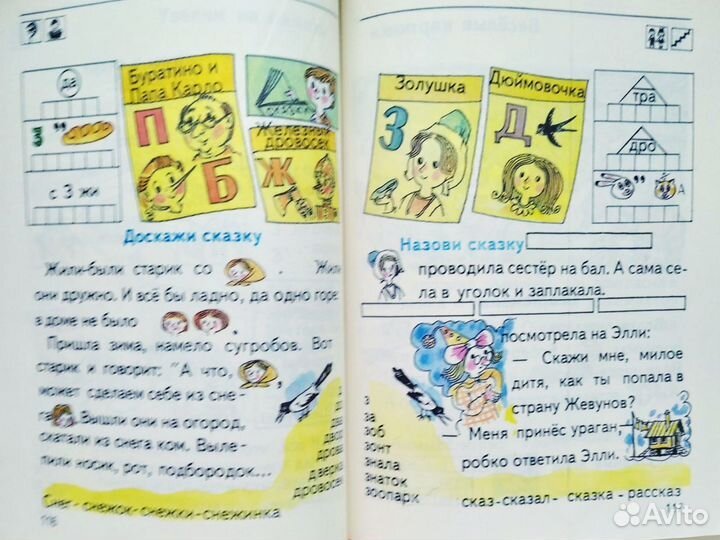 да
с 3 жи
Буратино и
Папа Карло
П
Б
Железный
дровосек
Ж
Доскажи сказку
Жили-были старик со . Жили
они дружно. И всё бы ладно, да одно горе:
в доме не было .
Пришла зима, намело сугробов. Вот
старик и говорит: “А что,
может сделаем себе из сне-
га Вышли они на огород,
скатали из снега ком. Выле-
пили носик, рот, подбородок...
дверка
дровосек
Снег - снежок - снежки - снежинка
116
Золушка
З
Дюймовочка
Д
тра
дро
Назови сказку
проводила сестёр на бал. А сама се-
ла в уголок и заплакала.
посмотрела на Элли:
— Скажи мне, милое
дитя, как ты попала в
страну Жевунов?
— Меня принёс ураган,—
робко ответила Элли.
з
за
зоб
зонт
знала
знаток
зоопарк
сказ-сказал- сказка - рассказ
117
Avito